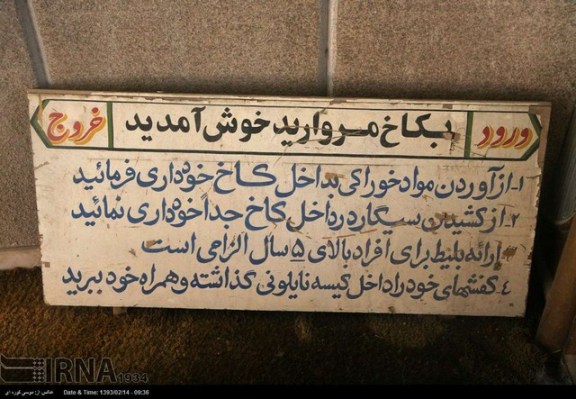 ورود
بکاخ مروارید خوش آمدید
خروج
۱- از آوردن مواد خوراکی بداخل کاخ خودداری فرمائید
۲- از کشیدن سیگار در داخل کاخ جداً خودداری نمائید
ارائه بلیط برای افراد بالای ۵ سال الزامی است
٤ کفشهای خود را داخل کیسه نایلونی گذاشته و همراه خود ببرید
IRNA
1934
عکاس از: موسی قوره ای
Date & Time: 1393/02/14 - 09:36